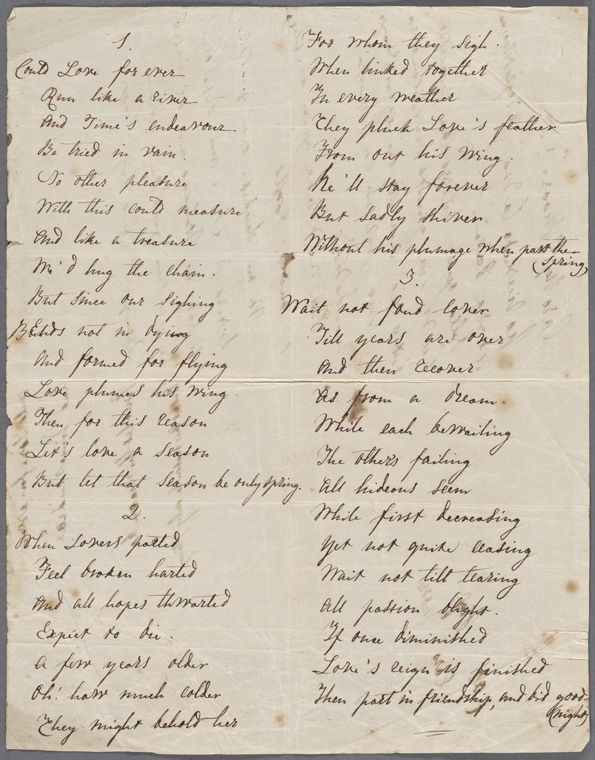 1.
Could Love for ever
Run like a river
And Time's endeavour
Be tried in vain.
No other pleasure
With this could measure
And like a treasure
We'd hug the chain.
But since our sighing
Ends not in dying
And formed for flying
Love plumes his wing.
Then for this reason
Let's love a season
But let that season be only spring.
2.
When Lovers parted
Feel broken harted
And all hopes thwarted
Expect to die.
A few years older
Oh! how much colder
They might behold her
For whom they sigh.
When linked together
In every weather
They pluck Love's feather
From out his wing.
He'll stay forever
But sadly shiver
Without his plumage when past the
(Spring)
3.
Wait not fond lover
Till years are over
And then recover
As from a dream.
While each bewailing
The others failing
All hideous seem
While first decreasing
Yet not quite ceasing
Wait not till tearing
All passion blight.
If once diminished
Love's reign is finished
Then part in friendship, and bid good-
(night)